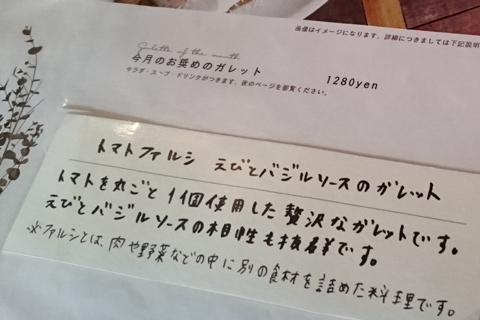 画像はイメージになります。詳細につきましては下記説明
Galette of the month
今月のお奨めのガレット
1280yen
サラダ・スープ・ドリンクがつきます。後のページを御覧ください。
トマトファルシ えびとバジルソースのガレット
トマトを丸ごと11回使用した贅沢なガレットです。
えびとバジルソースの相性も抜群です。
※ファルシとは、肉や野菜などの中に別の食材を詰めた料理です。